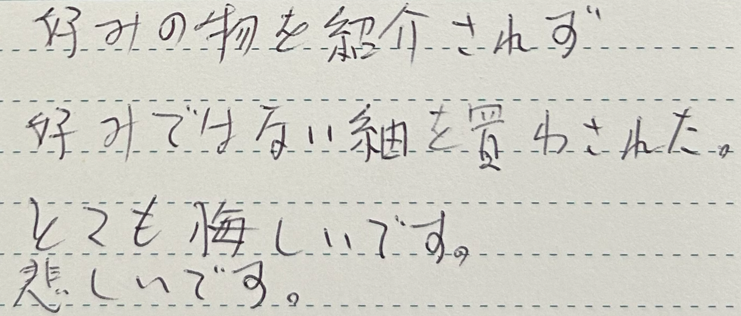 好みの物を紹介されず
好みではない細を買わされた。
とても悔しいです。
悲しいです。